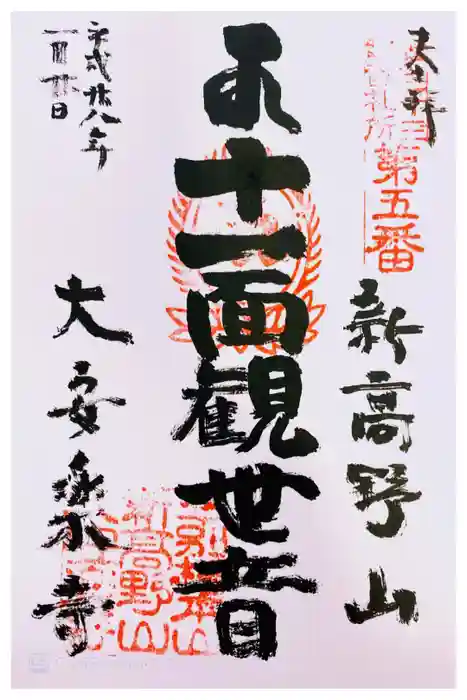 奉拝
札所第五番
新高野山
十一面観世音
別格本山
新高野山
平成廿八年
一月廿日
大安楽寺